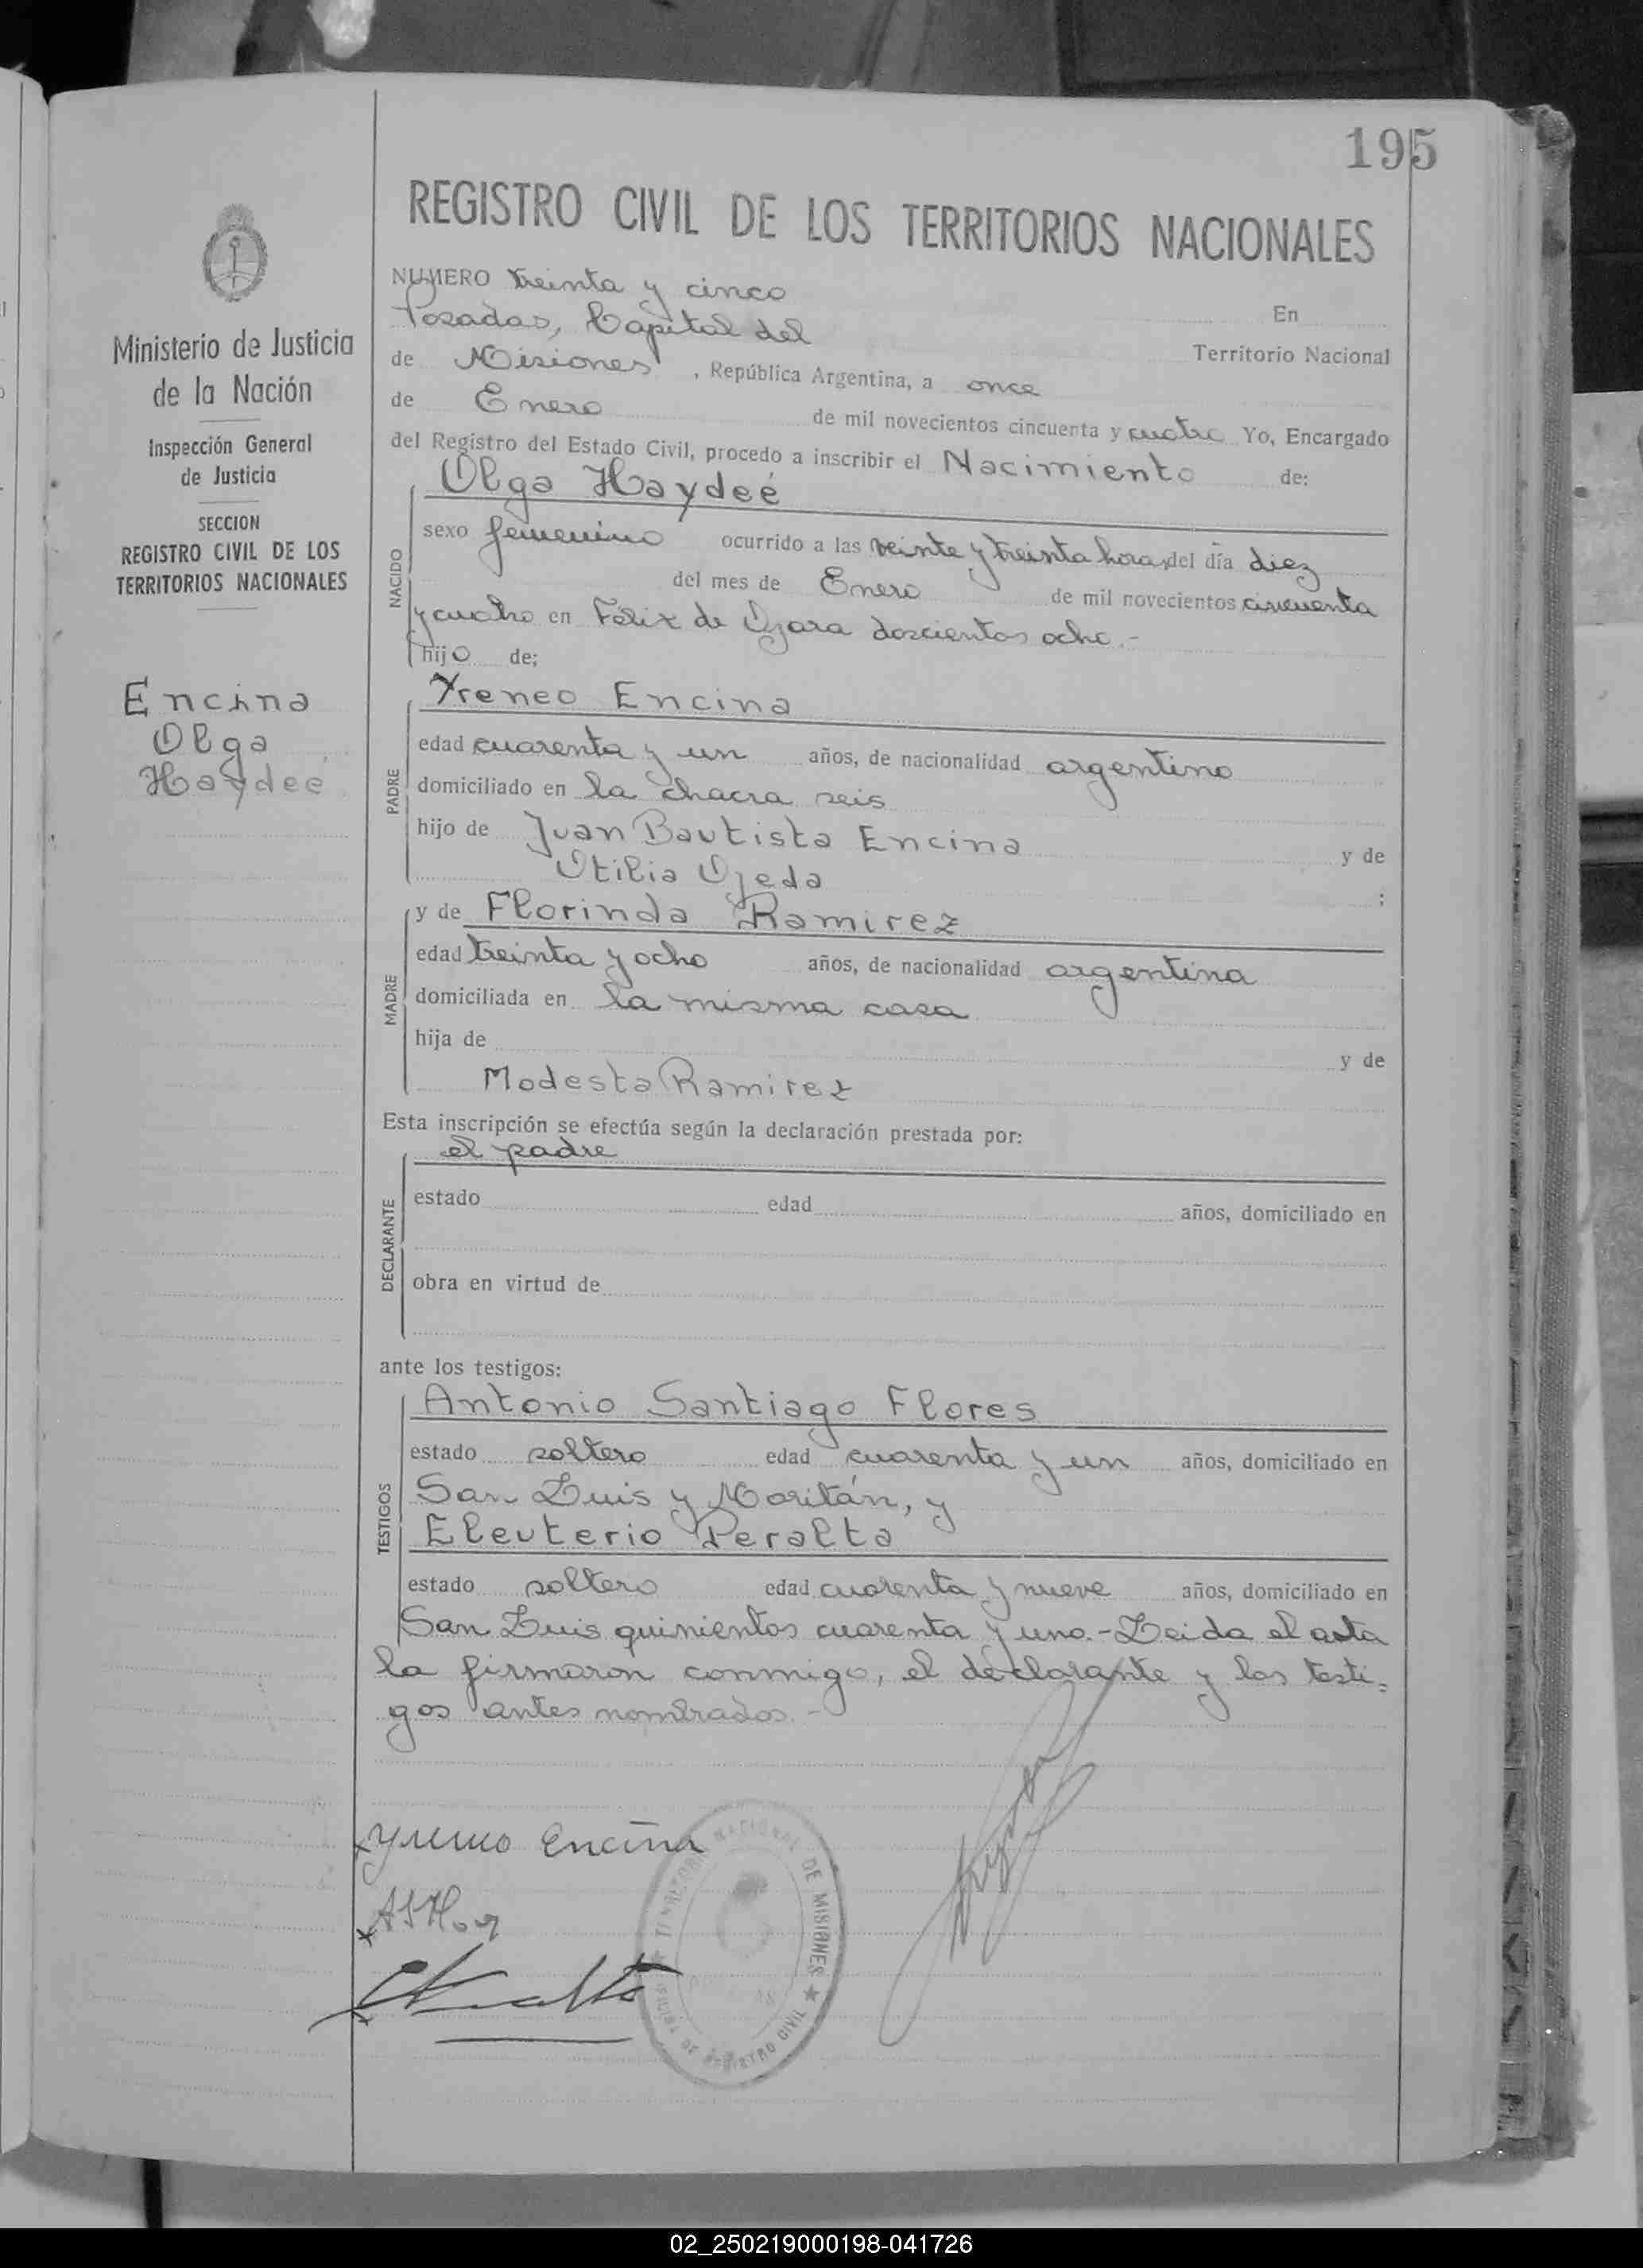 195
REGISTRO CIVIL DE LOS TERRITORIOS NACIONALES
Ministerio de Justicia
de la Nación
Inspección General
de Justicia
SECCION
REGISTRO CIVIL DE LOS
TERRITORIOS NACIONALES
Encina
Olga
Haydeé
NUMERO treinta y cinco
En
Posadas, Capital del
Territorio Nacional
de Misiones, República Argentina, a once
de Enero de mil novecientos cincuenta y cuatro Yo, Encargado
del Registro del Estado Civil, procedo a inscribir el Nacimiento de:
NACIDO
Olga Haydeé
sexo femenino ocurrido a las veinte y treinta horas del día diez
del mes de Enero de mil novecientos cincuenta
y cuatro en Felix de Azara doscientos ocho.-
hijo de;
PADRE
Yreneo Encina
edad cuarenta y un años, de nacionalidad argentino
domiciliado en la chacra seis
hijo de Juan Bautista Encina y de
Otilia Ojeda ;
MADRE
y de Florinda Ramirez
edad treinta y ocho años, de nacionalidad argentina
domiciliada en la misma casa
hija de y de
Modesta Ramirez
Esta inscripción se efectúa según la declaración prestada por:
DECLARANTE
el padre
estado edad años, domiciliado en
obra en virtud de
ante los testigos:
TESTIGOS
Antonio Santiago Flores
estado soltero edad cuarenta y un años, domiciliado en
San Luis y Moritán, y
Eleuterio Peralta
estado soltero edad cuarenta y nueve años, domiciliado en
San Luis quinientos cuarenta y uno.-Leida el acta
la firmaron conmigo, el declarante y los testi=
gos antes nombrados.-
x Yreneo Encina
NACIONAL DE MISIONES
REGISTRO CIVIL
02_250219000198-041726